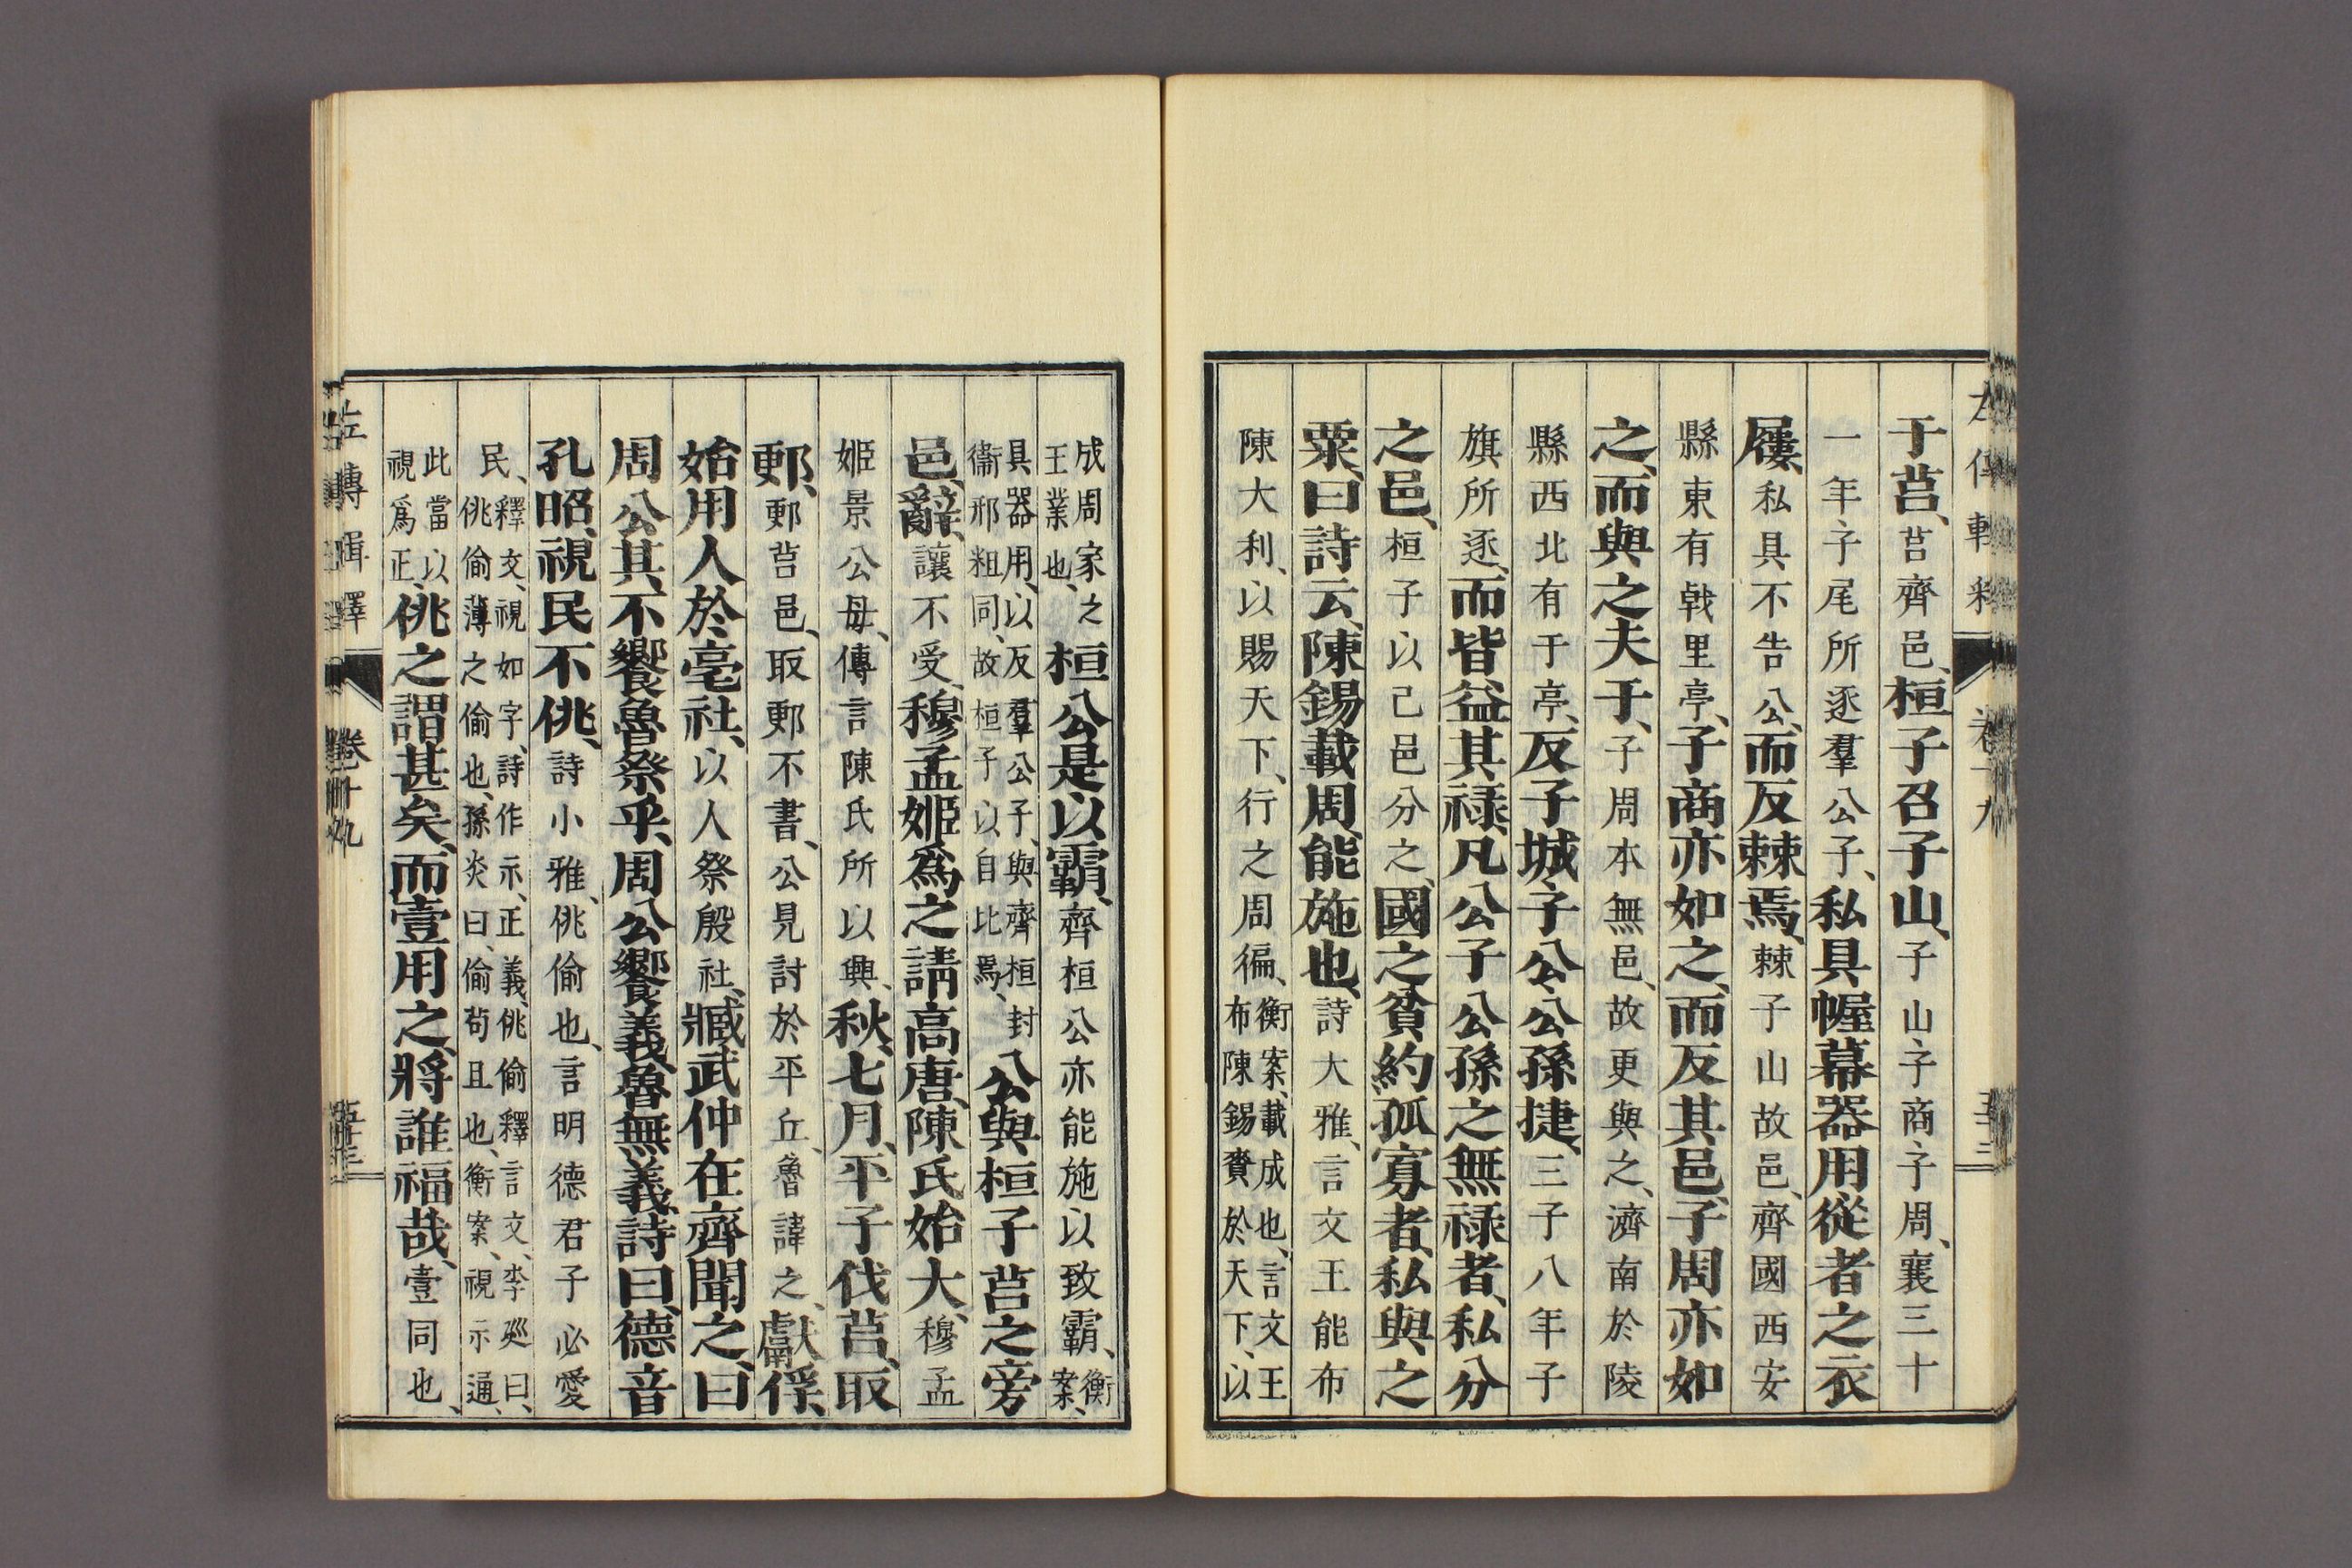 于莒、莒齊邑、桓子召子山、子山、子商、子周、襄三十
一年、子尾所逐羣公子、私具幄幕器用從者之衣
屨、私具不告公、而反棘焉、棘子山故邑、齊國西安
縣東有戟里亭、子商亦如之、而反其邑、子周亦如
之、而與之夫于、子周本無邑、故更與之、濟南於陵
縣西北有于亭、反子城、子公、公孫捷、三子八年子
旗所逐、而皆益其祿、凡公子公孫之無祿者、私分
之邑、桓子以己邑分之、國之貧約孤寡者、私與之
粟、曰詩云、陳錫載周、能施也、詩大雅、言文王能布
陳大利、以賜天下、行之周徧、衡案、載成也、言文王
布陳錫賚於天下、以
成周家之
王業也、桓公是以霸、齊桓公亦能施以致霸、衡
案、
具器用、以反羣公子、與齊桓封
衞邢粗同、故桓子以自比焉、公與桓子莒之旁
邑、辭、讓不受、穆孟姬爲之請高唐、陳氏始大、穆孟
姬景公母、傳言陳氏所以興、秋、七月、平子伐莒、取
郠、郠莒邑、取郠不書、公見討於平丘、魯諱之、獻俘、
始用人於亳社、以人祭殷社、臧武仲在齊聞之、曰
周公其不饗魯祭乎、周公饗義、魯無義、詩曰、德音
孔昭、視民不佻、詩小雅、佻偷也、言明德君子必愛
民、釋文、視如字、詩作示、正義、佻偷釋言文、李廵曰、
佻偷薄之偷也、孫炎曰、偷苟且也、衡案、視示通、
此當以
視爲正、佻之謂甚矣、而壹用之、將誰福哉、壹同也、
左傳輯釋 卷十九